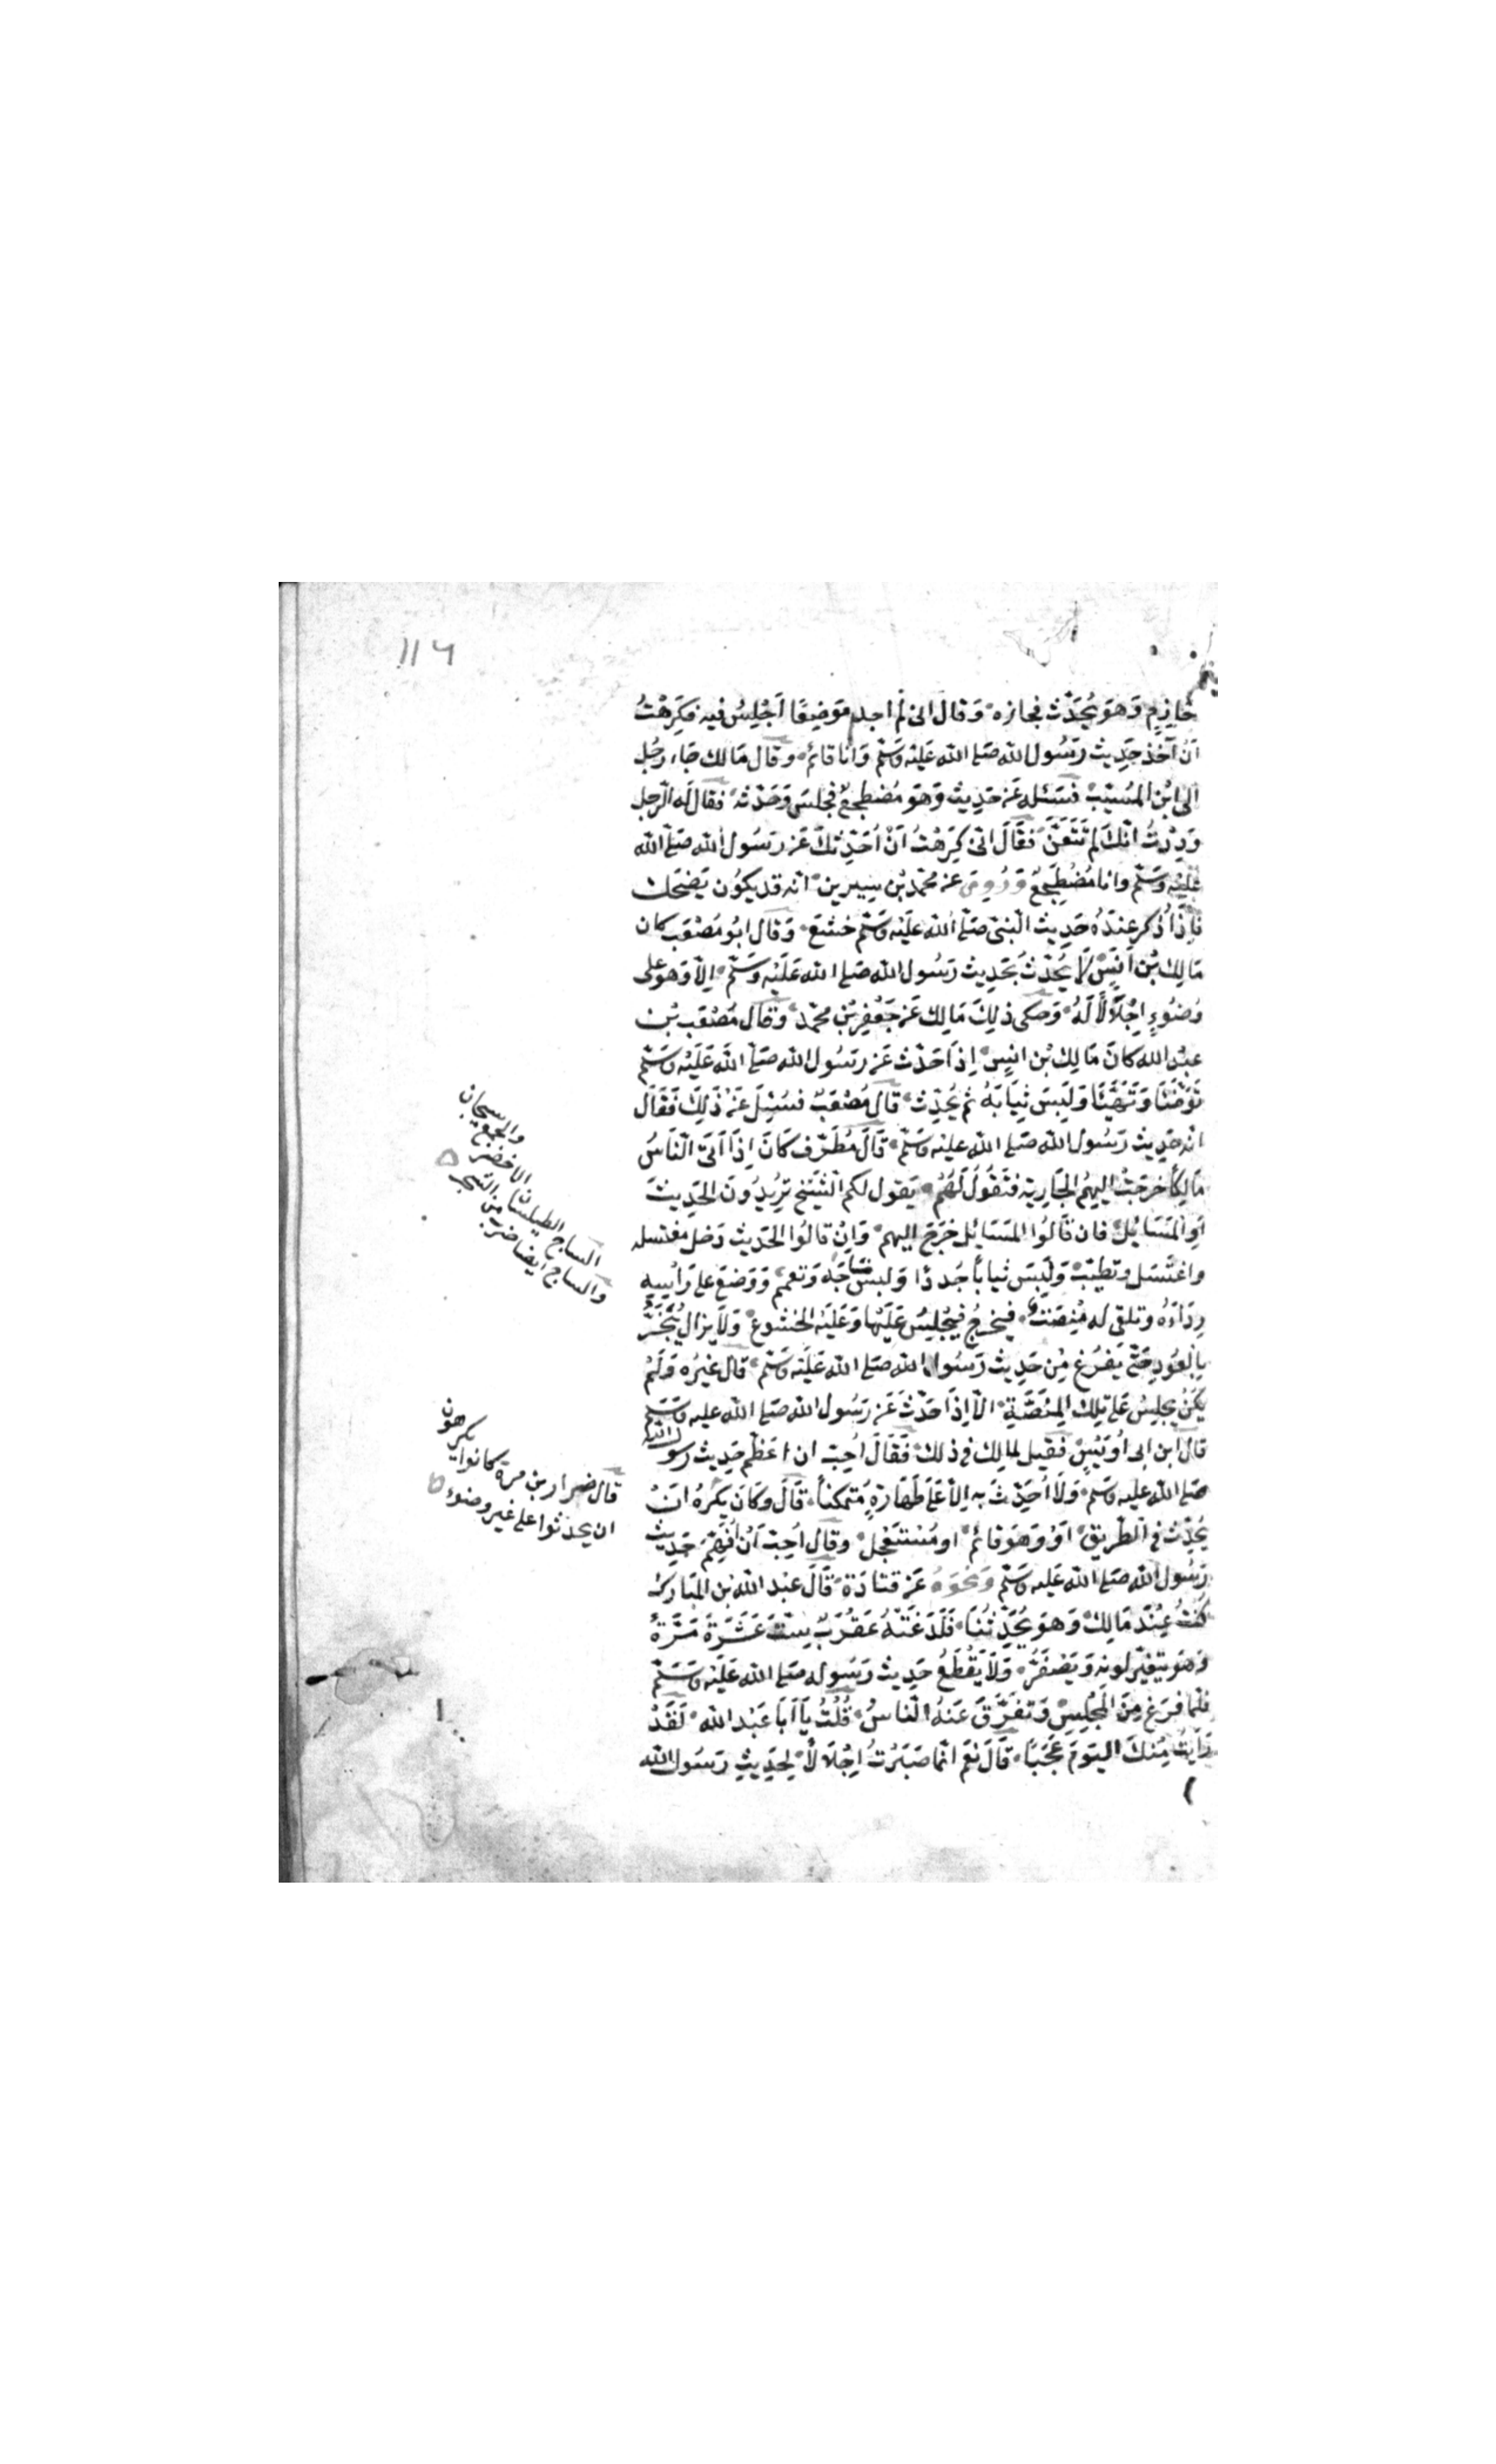 ١١٦
حَازِمٍ وَهُوَ يُحَدِّث فجازه وَقال اني لم اجد مَوضِعًا اَجْلِسُ فيه فكَرِهْتُ
اَنْ آخذ حَدِيث رَسُول الله صَلى الله عَليْه وَسَلم وَانا قائم وقال مَالك جَاء رَجُل
الى ابْن المُسَيّبْ فسَئله عَن حَدِيث وَهوَ مُضطجعٌ فجلسَ وَحَدّثه فقال له الرّجل
وَدِدْتُ اَنّكَ لم تَتَعَنَّ فقَالَ اِنّي كَرِهْتُ اَنْ اُحَدّثكَ عَن رسَُول الله صَلى الله
عليْه وَسَلم وانا مُضْطَجعٌ وَرُوِيَ عن محمّد بْن سِيرين انه قد يكوُن يَضْحَك
فَاِذَا ذُكر عنْدَهُ حَدِيث النّبي صَلى الله عليْه وَسَلم خشَعَ وَقال ابُو مُصْعَب كان
مَالِك بْن اَنَسْ لَا يُحَدّثُ بحَدِيث رَسُول الله صَلى الله عَلَيْه وَسَلم اِلا وَهو على
وُضُوءٍ اِجْلَالًا لَهُ وَحكى ذلِكَ مَالِك عَن جَعْفر بْن محمّد وَقال مُصْعَب بْن
عبْد الله كانَ مَالِك بْن انَسٍ اِذا حَدّث عَن رسَُول الله صَلى الله عَلَيْه وَسَلم
تَوَضّأَ وَتَهَيّأ وَلَبِسَ ثيَابَهُ ثم يُحَدّث قال مُصْعَبٌ فسُئِلَ عَنْ ذَلِكَ فَقَال
انه حَدِيث رَسُول الله صَلى الله عليْه وَسَلم قَالَ مُطَرّف كَانَ اِذَا اَتَى النّاسُ
مَالِكًا خرجَتْ اليهمُ الجَارِية فتَقُولُ لَهُمْ يَقول لكم الشّيْخ تُرِيدُونَ الحَدِيثَ
اَوِ المَسَائِل فان قَالُوا المسَائِل خَرَجَ اليهم وَاِنْ قالُوا الحَدِيث دَخل مغتسله
واغتسَل وتطيّبْ وَلَبِسَ ثيابًا جُددًا وَلبسَ سَاجَهُ وَتَعَمّم وَوَضعَ عَلى رَاْسِهِ
رِدَاءَهُ وتلقى له مِنصَّة فيخرُجُ فيَجْلِسُ عَلَيْهَا وَعَلَيْه الخشُوع وَلا يزال يُبَخّرُ
بِالعُود حَتّى يَفرُغ مِنْ حَدِيث رَسُول الله صَلى الله عَلَيْه وَسَلم قال غيْرُه وَلَمْ
يَكنْ يجلِسُ عَلى تِلك المِنَصَّةِ الاّ اِذَا حَدّثَ عَن رَسُول الله صَلى الله عليه وَسَلم
قال ابن ابي اُوَيْسٍ فقيل لمالِك في ذلك فَقَالَ اُحِبّ ان اعَظّم حَدِيث رسول الله
صَلى الله عليه وَسَلم وَلَا اُحَدّث به اِلا عَلى طَهَارَةٍ مُتمكنًا قَالَ وَكَانَ يَكْرَهُ اَنْ
يُحَدّث في الطّريق اَوْ وَهوَ قائم او مُسْتَعْجل وقال اُحِبّ اَنْ اُفَهّمَ حَدِيث
رَسُول الله صَلى الله عَليه وَسَلم وَنحْوَهُ عَن قتادَة قَالَ عَبْد الله بْن المبَارك
كُنْتُ عِنْدَ مَالِك وَهوَ يُحَدّثُنَا فَلَدَغَتْهُ عَقْرَبٌ سِتّ عَشَرَةَ مَرَّةً
وَهوَ يتغيّر لونه وَيَصْفَرُّ وَلَا يَقْطَعُ حَدِيث رَسُوله صَلى الله عَلَيْه وَسَلم
فلمّا فرَغ مِنَ المَجْلِسِ وَتفَرّقَ عَنهُ النّاسُ قُلْتُ يَا اَبَا عَبْد الله لَقَدْ
رَاَيْتُ مِنْكَ اليَوْمَ عَجَبًا قَالَ نعَم انّما صَبَرْتُ اِجْلَالًا لِحَدِيثِ رَسُول الله
الساج الطيلسان الاخضر والجمع السيجان
والساج ايضا ضرب من الشجر
قال ضرار بن مرة كانوا يكرهون
ان يحدثوا على غير وضوء